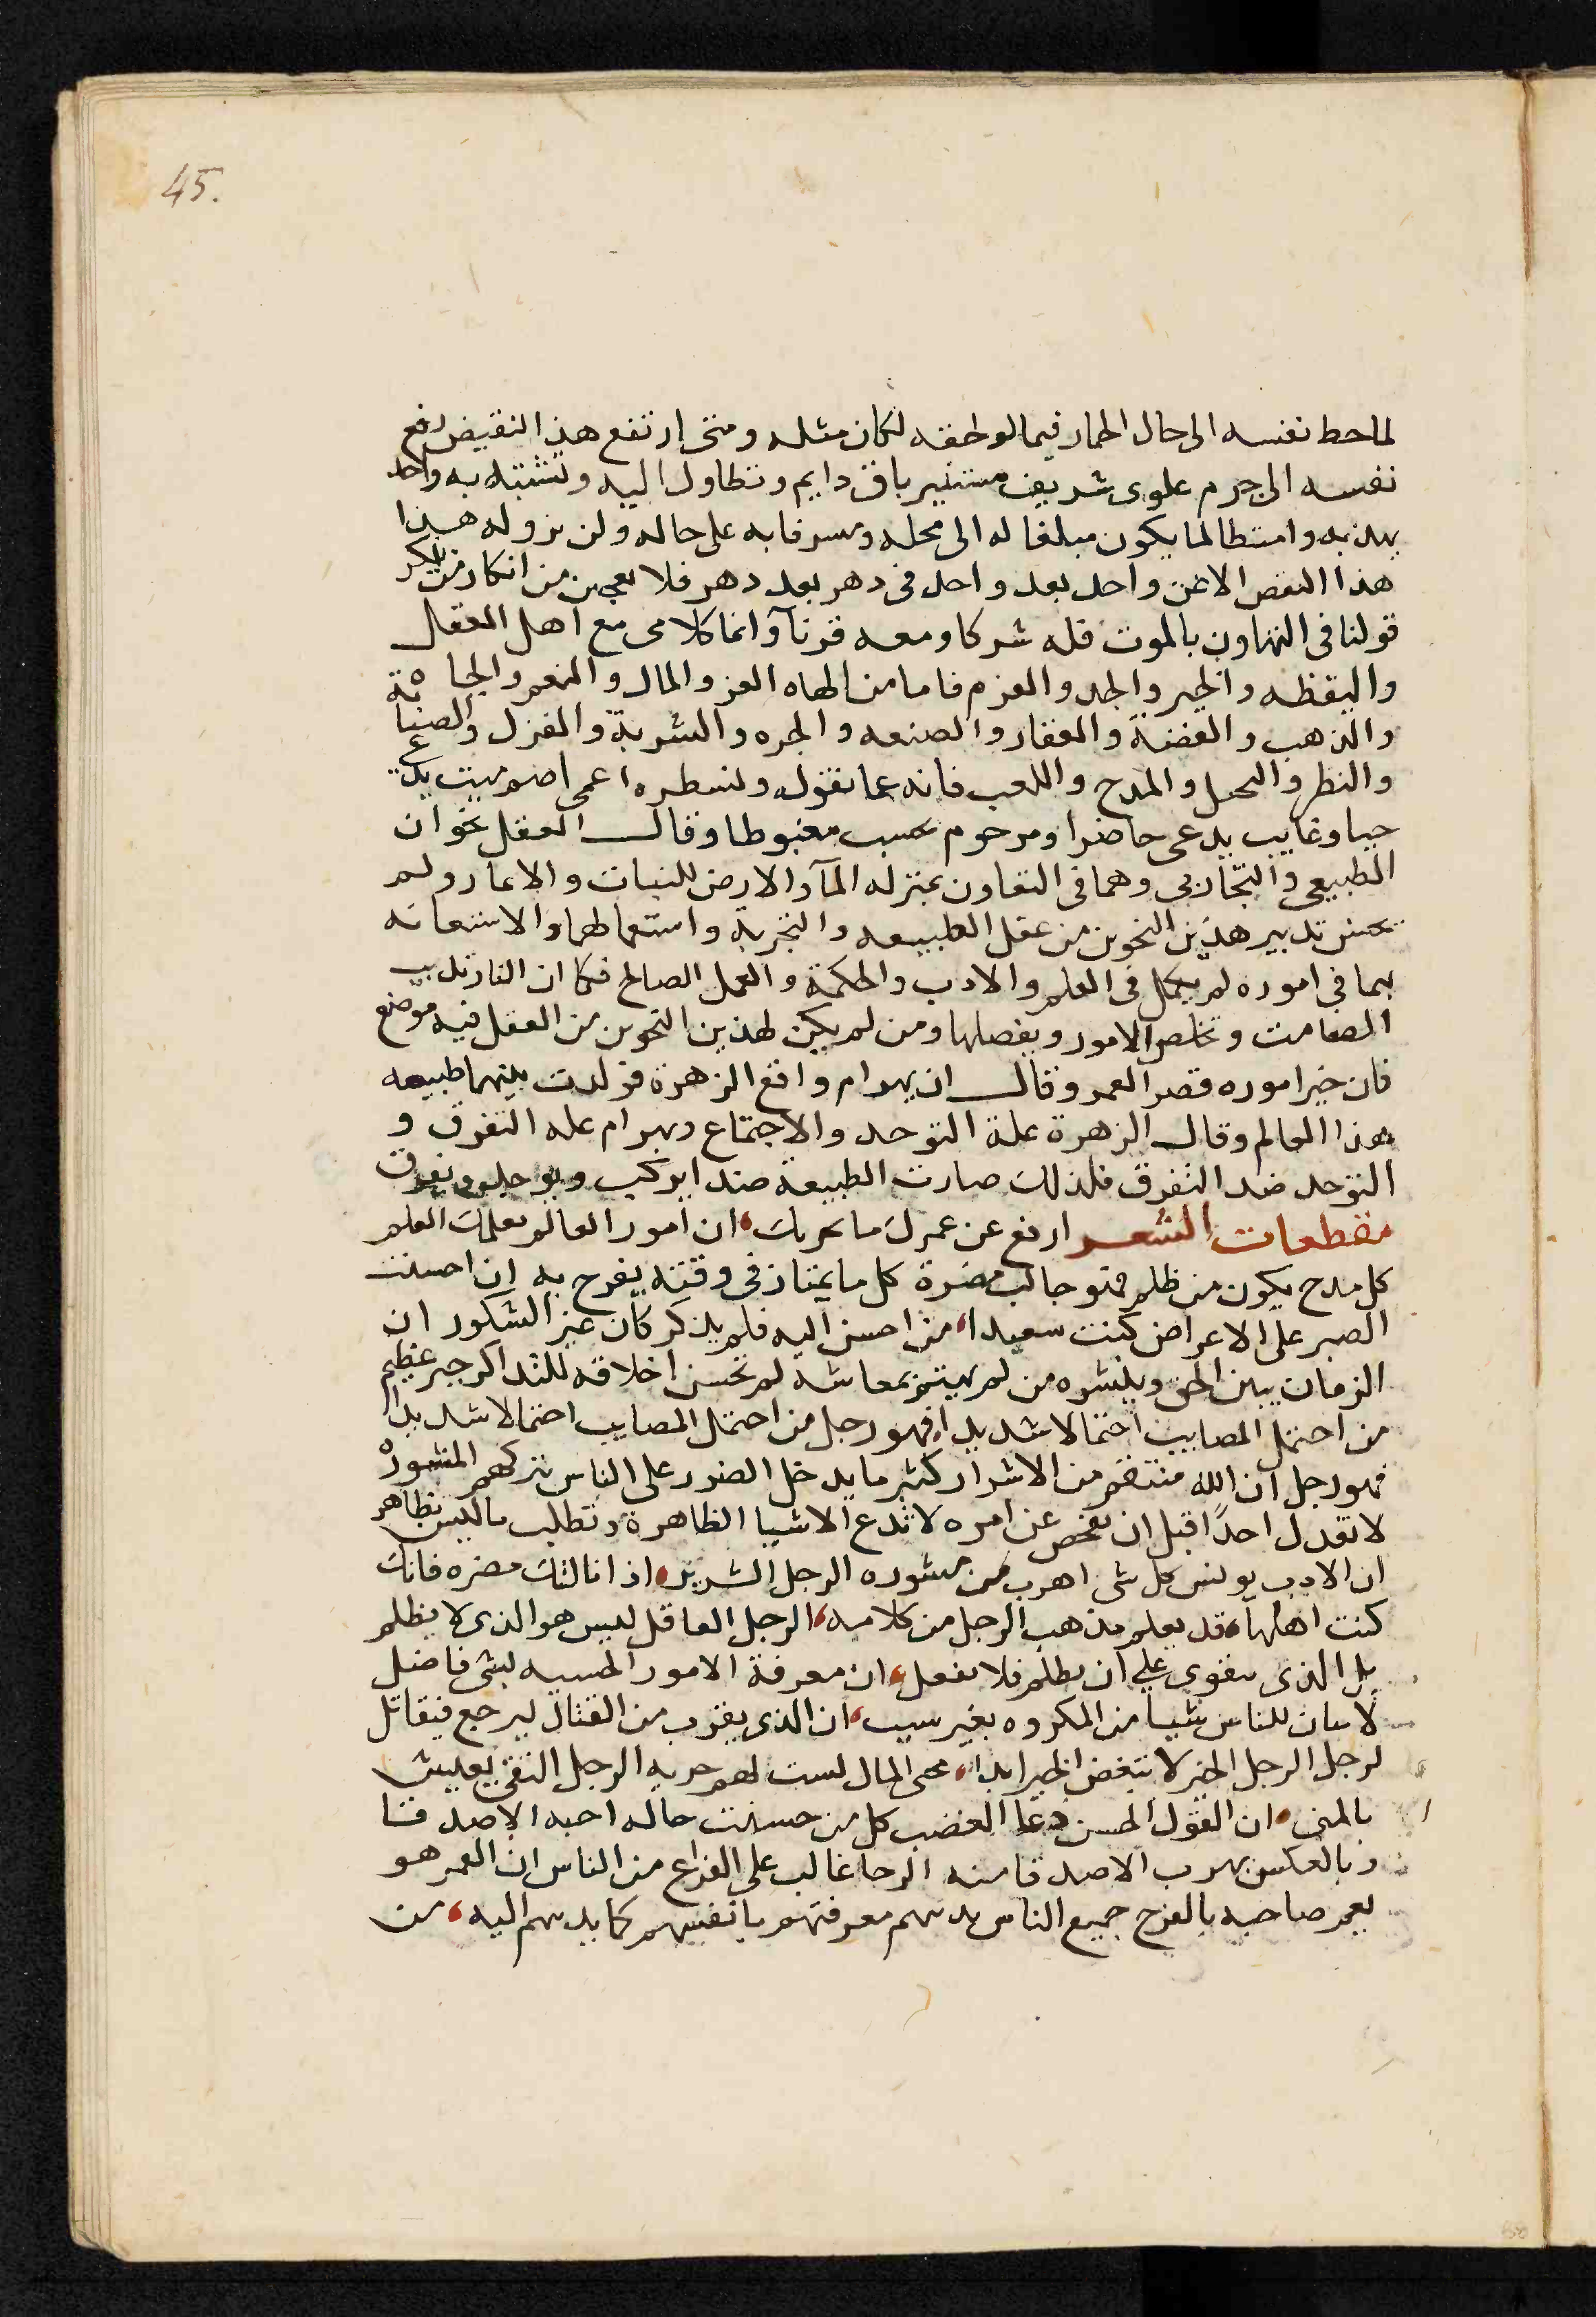 45.
لما حط نفسه الى حال الحمار فيما لو لحقه لكان مثله ومتى ارتفع هذا النقيض رفع
نفسه الى جرم علوى شريف مستنير باق دايم وتطاول اليه وتشبه به واحد
يهذبه وامتطا لما يكون مبلغا له الى محله ومسرفا به على حاله ولن يزوله هذا
هذا النقص الا عن واحد بعد واحد فى دهر بعد دهر فلا تعجبن من انكار من ينكر
قولنا فى التهاون بالموت فله شركا ومعه قرنآ وانما كلامى مع اهل العقل
واليقظه والخير والجد والعزم فاما من الهاه العز والمال والنعم والجاه
والذهب والفضة والعقار والصنعه والجره والشربة والغزل والصناعة
والنظر والنحل والمدح واللعب فانه عما نقول ونسطره اعمى اصم ميت يدعى
حيا وغايب يدعى حاضرا ومرحوم يحسب مغبوطا وقال العقل نحوان
الطبيعى والتجاربى وهما فى التعاون بمنزله المآ والارض للنبات والاعمار ولم
يحسن تدبير هذين النحوين من عقل الطبيعه والتجربة واستعمالهما والاستعانه
بهما فى اموره لم يكمل فى العلم والادب والحكمة والعمل الصالح فكما ان النار تذيب
الصامت وتخلص الامور ويفصلها ومن لم يكن لهذين النحوين من العقل فيه موضع
فان خير اموره قصر العمر وقال ان بهرام واقع الزهرة فولدت بينهما طبيعه
هذا العالم وقال الزهرة علة التوحد والاجتماع وبهرام عله التفرق و
التوحد ضد التفرق فلذلك صارت الطبيعة ضدا يركب ويوحد ويفرق
مقطعات الشعر ارفع عن عمرك ما يحزنك، ان امور العالم تعلمك العلم
كل مدح يكون من ظلم فهو جالب مضرة كل ما يمتاز فى وقته يفرح به ان احسنت
الصبر على الاعراض كنت سعيدا، من احسن اليه فلم يذكر كان غير الشكور ان
الزمان يبين الحق وينشره من لم يهتم بمعاشه لم تحسن اخلاقه للتذاكر جبر عظيم
من احتمل المصايب احتمالا شديدا، فهو رجل من احتمل المصايب احتمالا شديدا
فهو رجل ان الله منتقم من الاشرار كثير ما يدخل الضرر على الناس تركهم المشورة
لا تعذل احدًا قبل ان تفحص عن امره لا تدع الاشيا الظاهرة وتطلب ما ليس بظاهر
ان الادب يونس كل شى اهرب من مشوره الرجل الشرير، اذا نالتك مضره فانك
كنت اهلها، قد يعلم مذهب الرجل من كلامه، الرجل العاقل ليس هو الذى لا يظلم
بل الذى يقوى على ان يظلم فلا يفعل، ان معرفة الامور الحسنه لشى فاضل
لاسان للناس شيا من المكروه بغير سبب، ان الذى يقرب من القتال ليرجع فيقاتل
لرجل الرجل الخير لا تبغض الخير ابدا، محبى المال ليست لهم حريه الرجل التقى يعيش
بالمنى، ان القول الحسن دعا الغضب كل من حسنت حاله احبه الاصدقا
وبالعكس يهرب الاصدقا منه الرجا غالب على الفزاع من الناس ان العمر هو
يعمر صاحبه بالفرح جميع الناس يدنيهم معرفتهم بانفسهم كما يدنيهم اليه، من